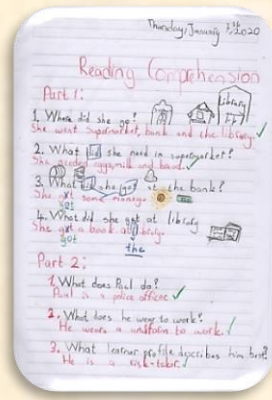 Thursday, January 2020
Reading Comprehension
Part 1:
Library
1. Where did she go?
She went supermarket, bank and the library.
2. What did she need in supermarket?
She needed eggs, milk and bread.
3. What did she get at the bank?
She got some money.
got
4. What did she get at library
She got a book at library.
got
the
Part 2:
1. What does Paul do?
Paul is a police officer.
2. What does he wear to work?
He wears a uniform to work.
3. What learner profile describes him best?
He is a risk-taker.